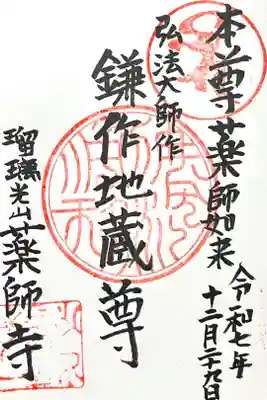 本尊薬師如来
令和七年
十二月二十九日
弘法大師作
鎌作地蔵尊
瑠璃光山薬師寺